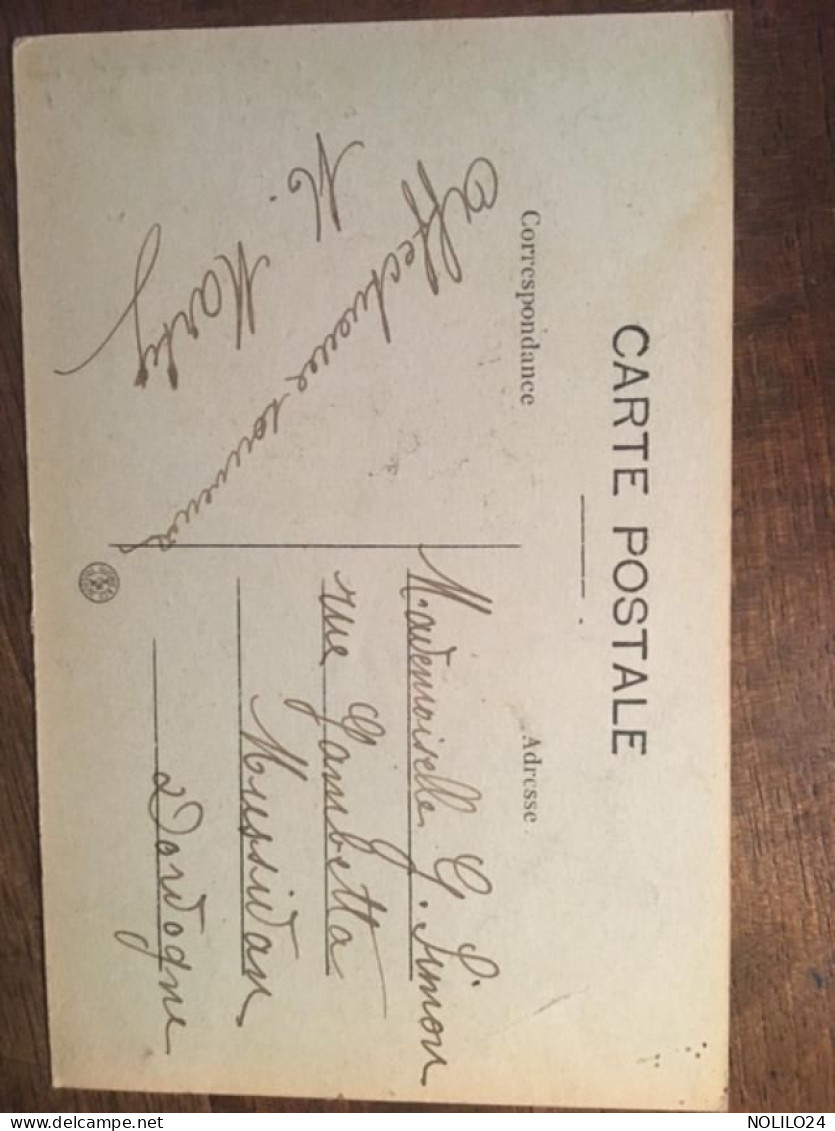 CARTE POSTALE
Correspondance
Affectueux souvenirs
M. Marty
Adresse.
Mademoiselle G. Simon
rue Gambetta
Mussidan
Dordogne
NOLILO24